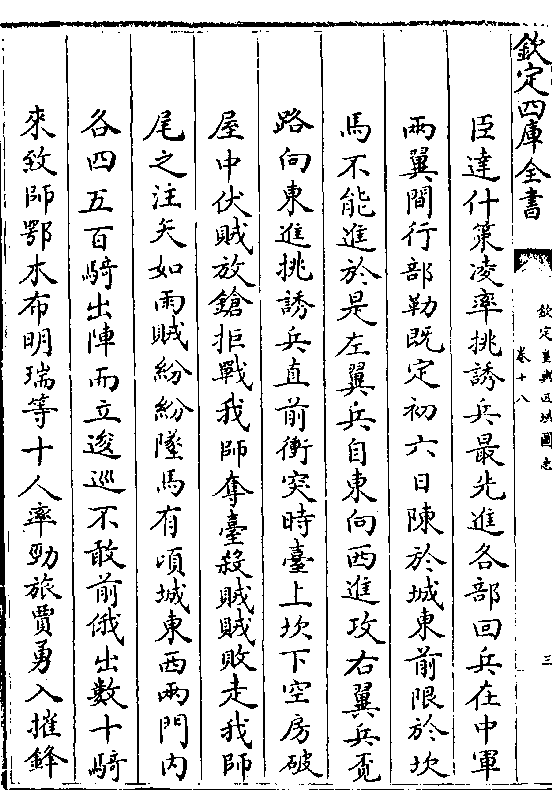 欽定四庫全書
欽定皇輿西域圖志
卷十八
三
臣達什策凌率挑誘兵最先進各部回兵在中軍
兩翼間行部勒既定初六日陳於城東前限於坎
馬不能進於是左翼兵自東向西進攻右翼兵覓
路向東進挑誘兵直前衝突時臺上坎下空房破
屋中伏賊放鎗拒戰我師奪臺殺賊賊敗走我師
尾之注矢如雨賊紛紛墜馬有頃城東西兩門内
各四五百騎出陣而立逡巡不敢前俄出數十騎
來致師鄂木布明瑞等十人率勁旅賈勇入摧鋒